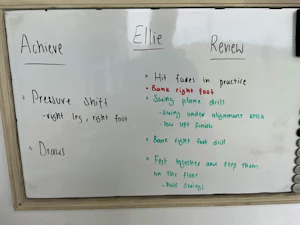 Achieve
Ellie
Review
Pressure shift
- right leg, right foot
Draws
Hit fades in practice
Bank right foot
Swing plane drill
- Swing under alignment stick
- low left finish
Bank right foot drill
Feet together and step them
on the floor
- half swings